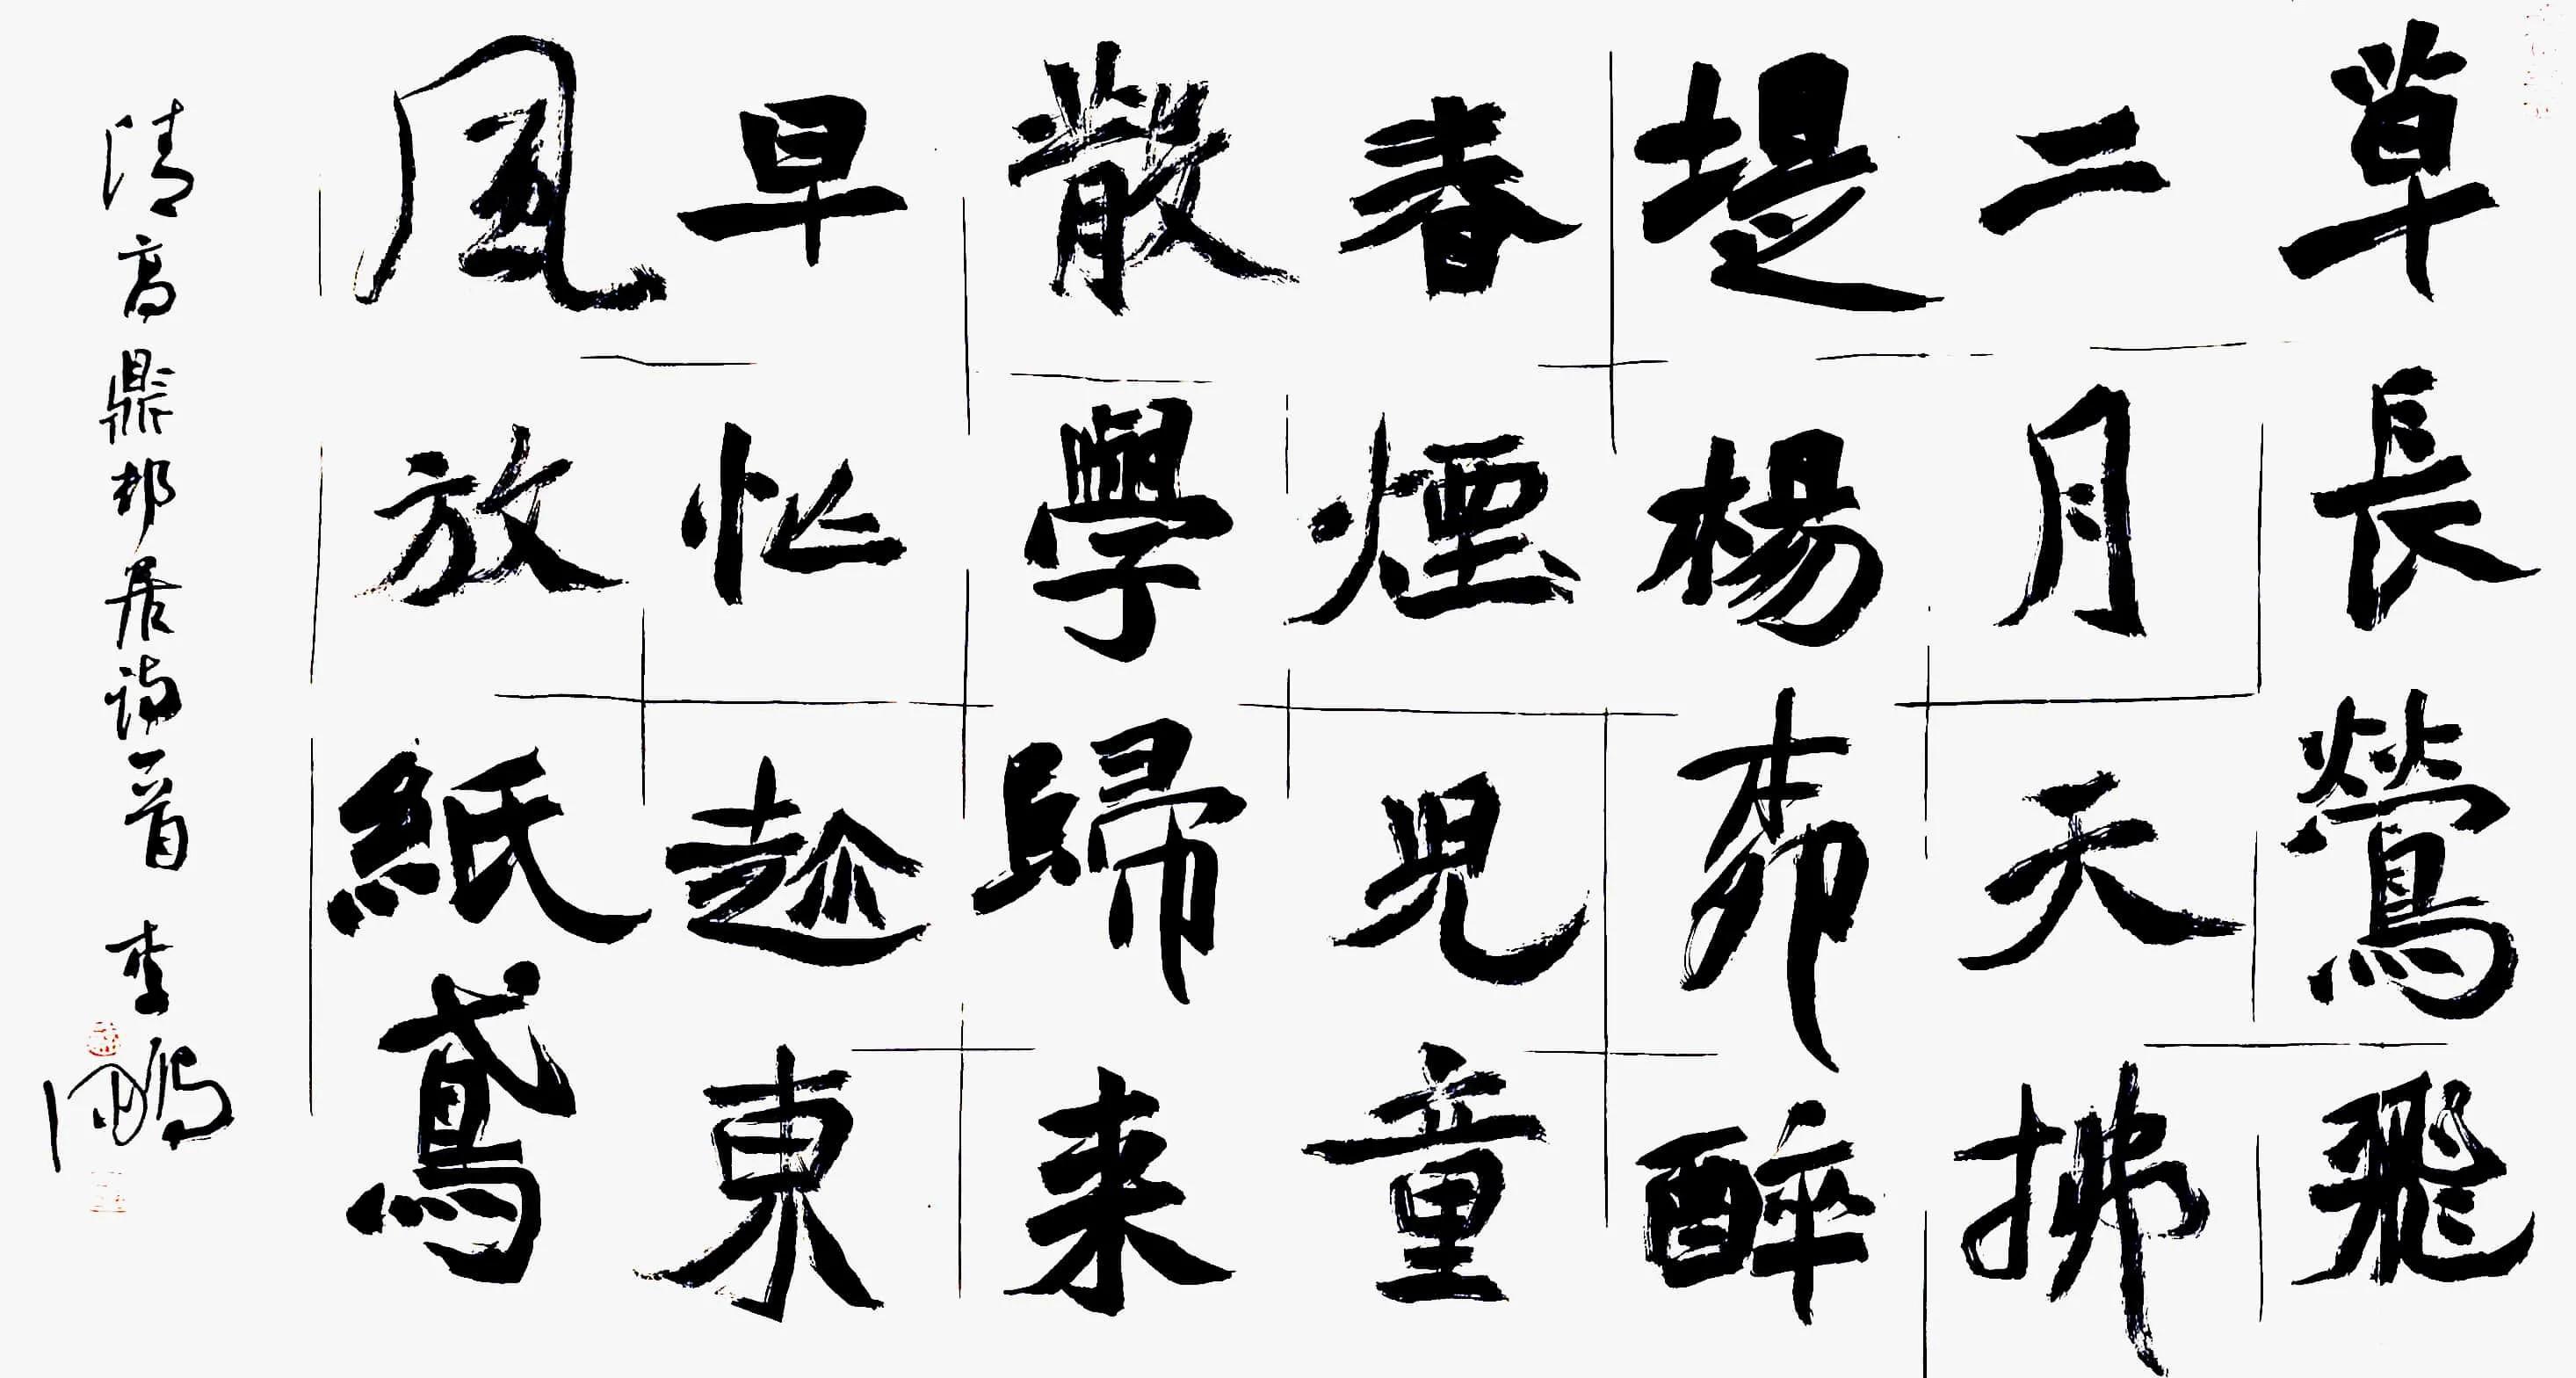 草長鶯飛
二月天拂
堤楊柳醉
春煙兒童
散學歸来
早忙趂東
風放紙鳶
清高鼎邨居詩一首 李鵬